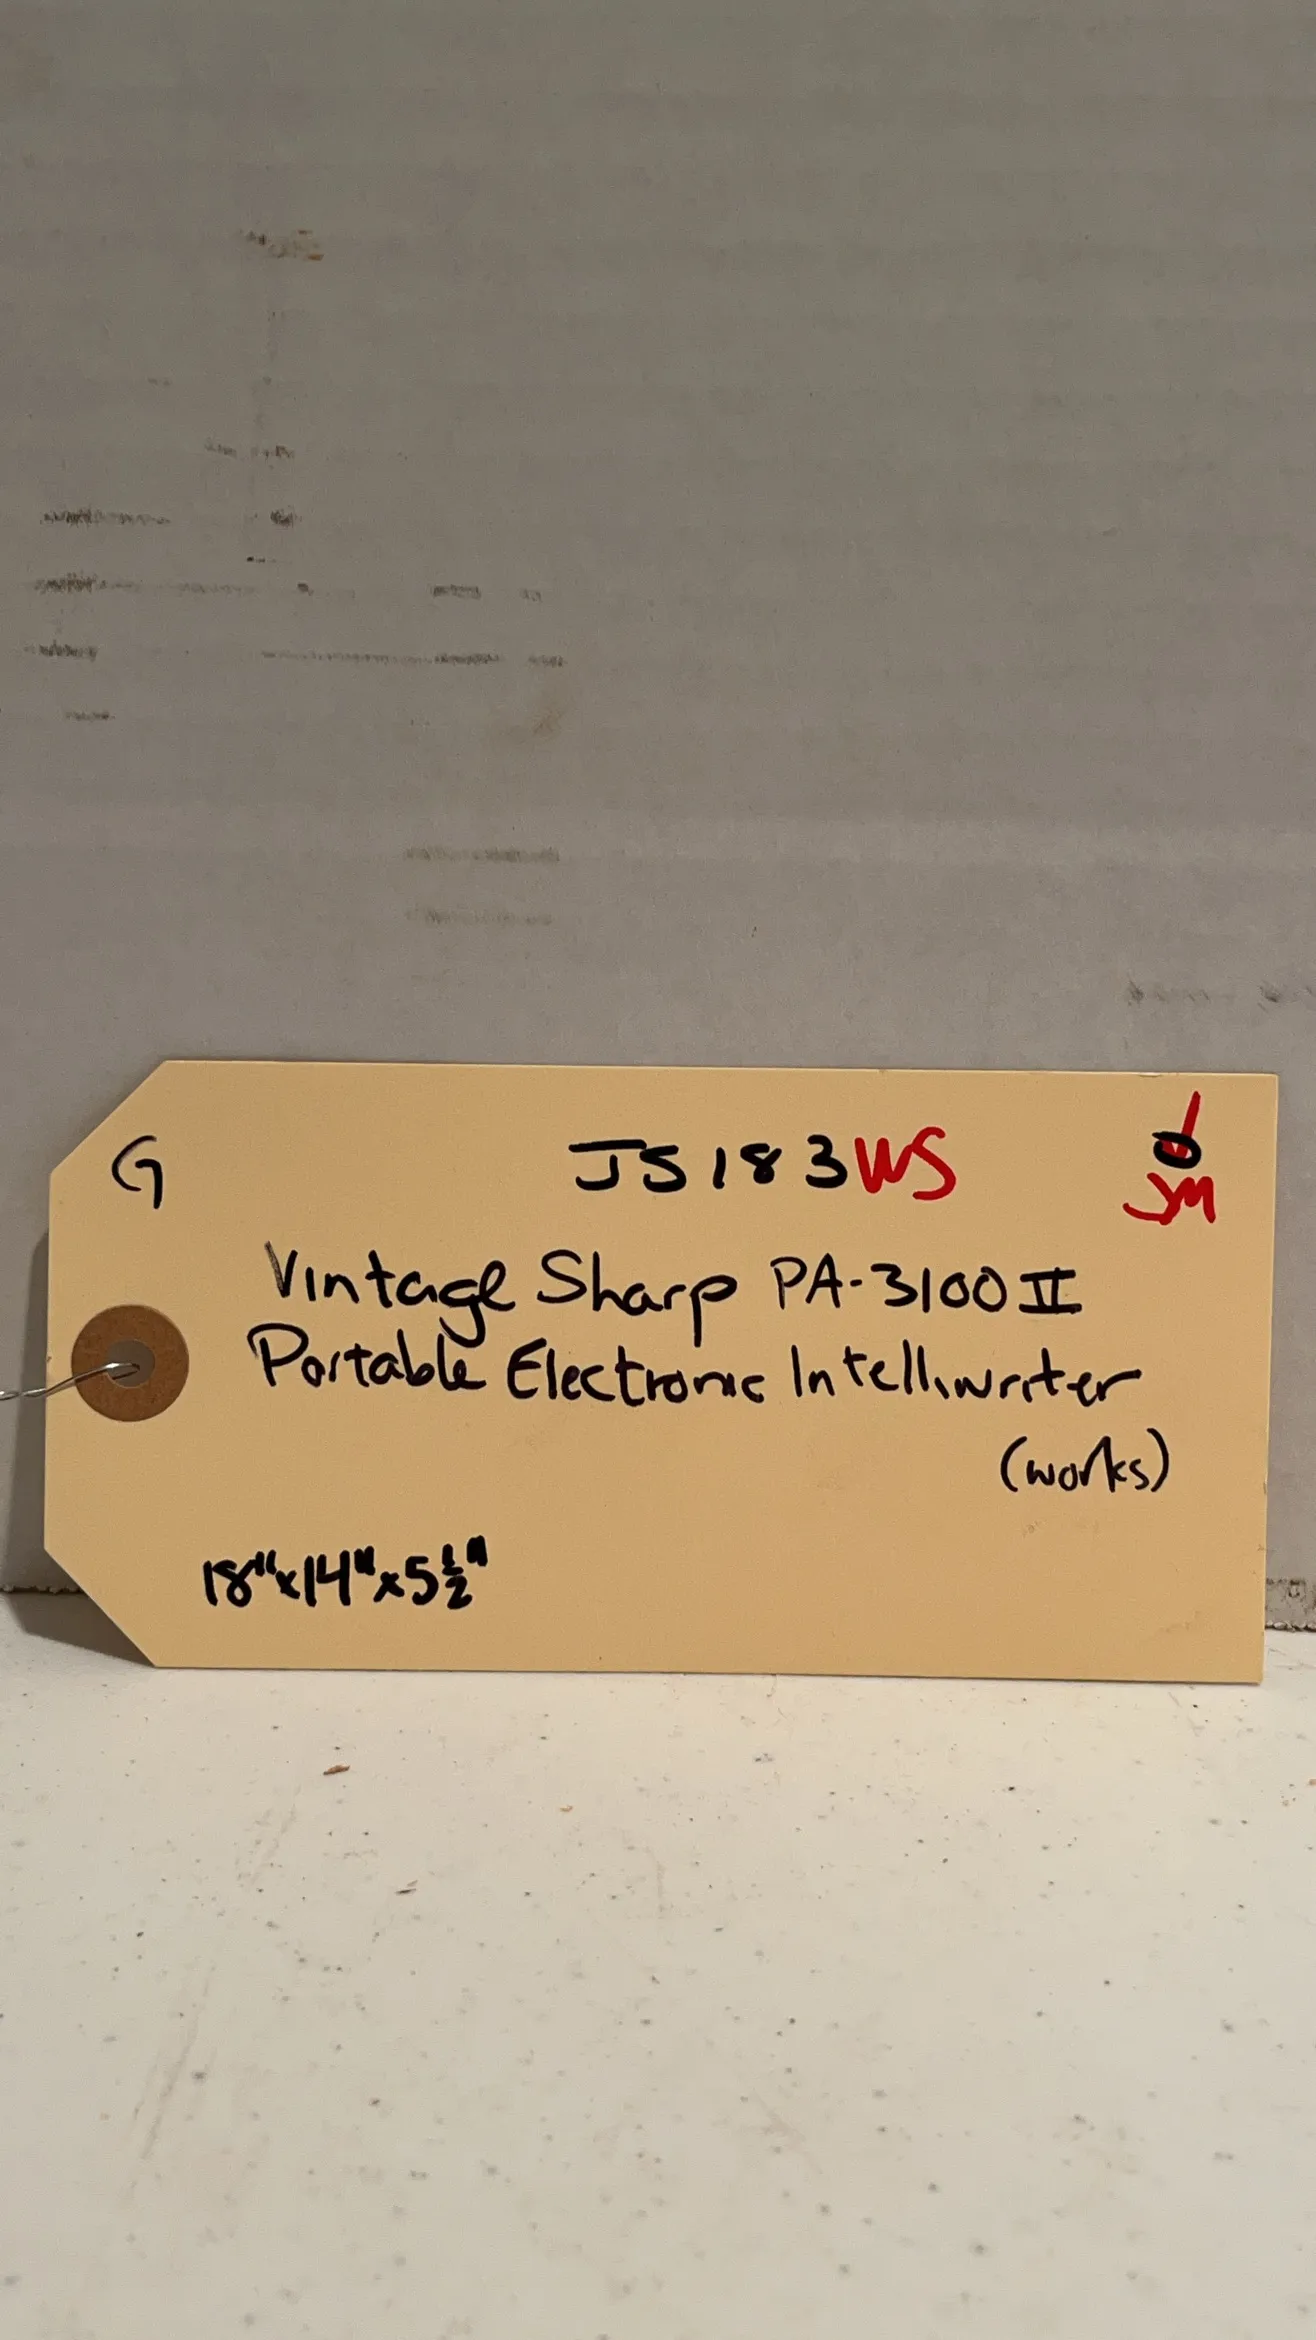 G JS183WS
JM
Vintage Sharp PA-3100 II
Portable Electronic Intelliwriter
(works)
18"x14"x5½"